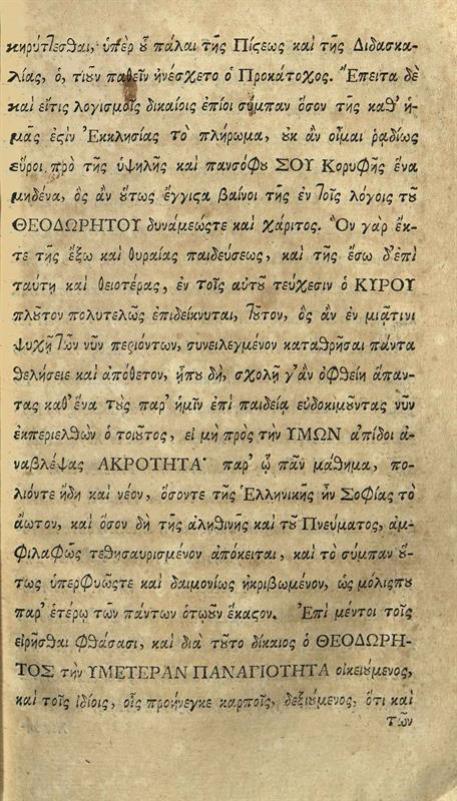 κηρύττεσθαι, ὑπὲρ ὗ πάλαι τῆς Πίςεως καὶ τῆς Διδασκα-
λίας, ὅ, τιῦν παθεῖν ἠνέσχετο ὁ Προκάτοχος. Ἔπειτα δὲ
καὶ εἴτις λογισμοῖς δικαίοις ἐπίοι σύμπαν ὅσον τῆς καθ' ἡ-
μᾶς ἐςὶν Ἐκκλησίας τὸ πλήρωμα, ὐκ ἂν οἶμαι ῥᾳδίως
εὕροι πρὸ τῆς ὑψηλῆς καὶ πανσόφυ ΣΟΥ Κορυφῆς ἕνα
μηδένα, ὃς ἂν ὕτως ἔγγιςα βαίνοι τῆς ἐν τοῖς λόγοις τῦ
ΘΕΟΔΩΡΗΤΟΥ δυνάμεώςτε καὶ χάριτος. Ὃν γὰρ ἔκ-
τε τῆς ἔξω καὶ θυραίας παιδεύσεως, καὶ τῆς ἔσω δ' ἐπὶ
ταύτῃ καὶ θειοτέρας, ἐν τοῖς αὐτῦ τεύχεσιν ὁ ΚΥΡΟΥ
πλῦτον πολυτελῶς ἐπιδείκνυται, τῦτον, ὃς ἂν ἐν μιᾷτινι
ψυχῇ τῶν νῦν περιόντων, συνειλεγμένον καταθρῆσαι πάντα
θελήσειε καὶ ἀπόθετον, ἤπυ δὴ, σχολῇ γ' ἂν ὀφθείη ἅπαν-
τας καθ' ἕνα τὺς παρ' ἡμῖν ἐπὶ παιδείᾳ εὐδοκιμῦντας νῦν
ἐκπεριελθὼν ὁ τοιῦτος, εἰ μὴ πρὸς τὴν ΥΜΩΝ ἀπίδοι ἀ-
ναβλέψας ΑΚΡΟΤΗΤΑ· παρ' ᾧ πᾶν μάθημα, πο-
λιόντε ἤδη καὶ νέον, ὅσοντε τῆς Ἑλληνικῆς ἦν Σοφίας τὸ
ἄωτον, καὶ ὅσον δὴ τῆς ἀληθινῆς καὶ τῦ Πνεύματος, ἀμ-
φιλαφῶς τεθησαυρισμένον ἀπόκειται, καὶ τὸ σύμπαν ὕ-
τως ὑπερφυῶςτε καὶ δαιμονίως ἠκριβωμένον, ὡς μόλιςπυ
παρ' ἑτέρῳ τῶν πάντων ὁτῳῦν ἕκαςον. Ἐπὶ μέντοι τοῖς
εἰρῆσθαι φθάσασι, καὶ διὰ τῦτο δίκαιος ὁ ΘΕΟΔΩΡΗ-
ΤΟΣ τὴν ΥΜΕΤΕΡΑΝ ΠΑΝΑΓΙΟΤΗΤΑ οἰκειύμενος,
καὶ τοῖς ἰδίοις, οἷς προήνεγκε καρποῖς, δεξιύμενος, ὅτι καὶ
τῶν